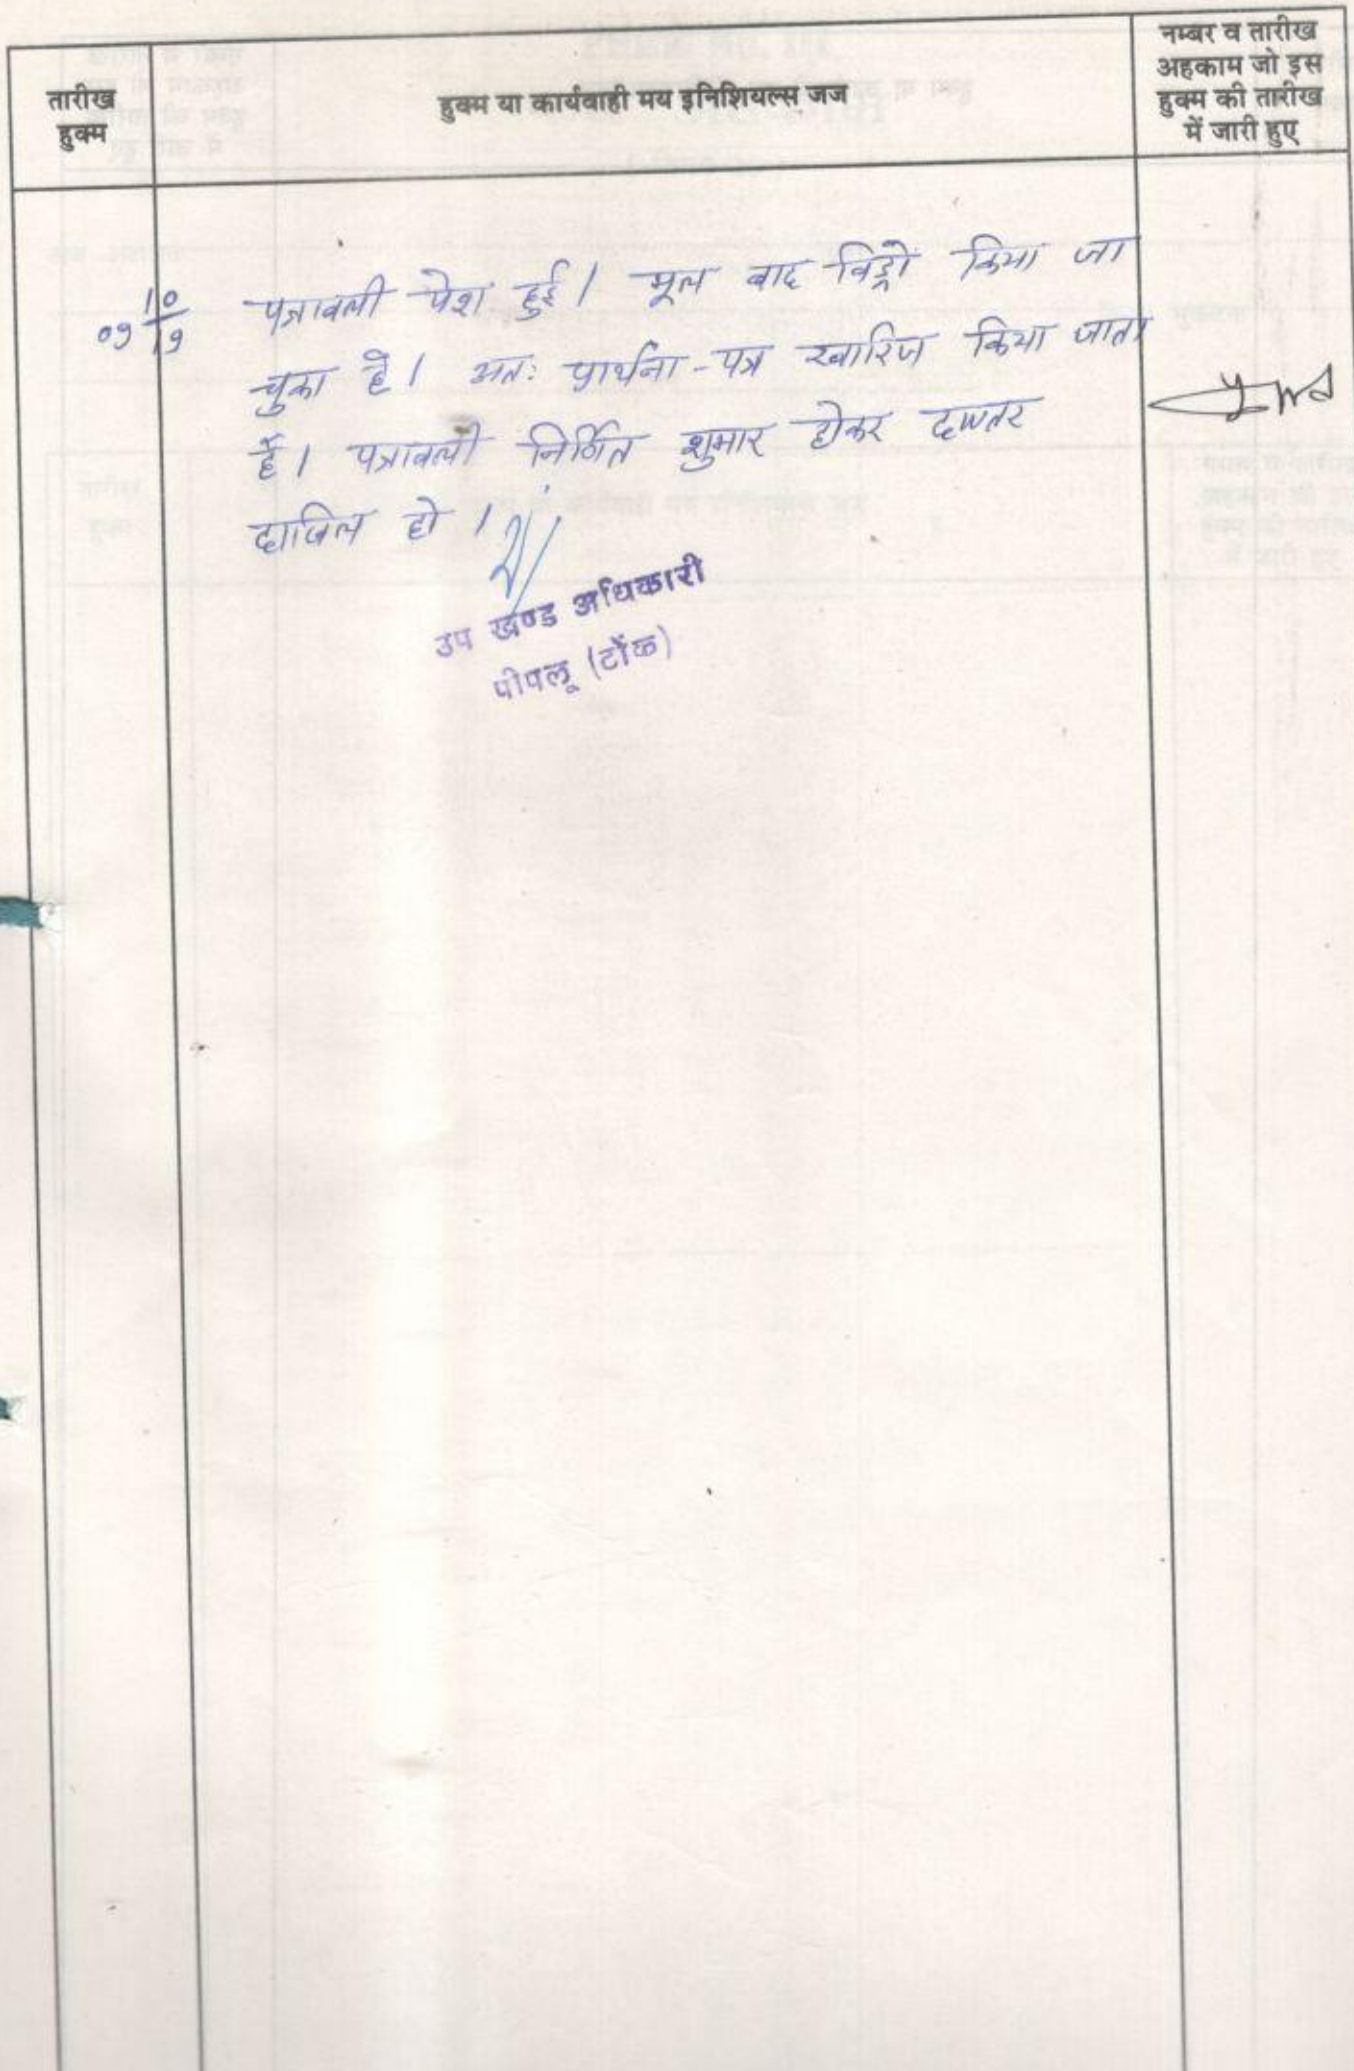 तारीख
हुक्म
हुक्म या कार्यवाही मय इनिशियल्स जज
नम्बर व तारीख
अहकाम जो इस
हुक्म की तारीख
में जारी हुए
10
09 19
पत्रावली पेश हुई। मूल वाद विड्रो किया जा
चुका है। अतः प्रार्थना-पत्र खारिज किया जाता
है। पत्रावली निर्णित शुमार होकर दफ्तर
दाखिल हो।
उप खण्ड अधिकारी
पीपलू (टोंक)